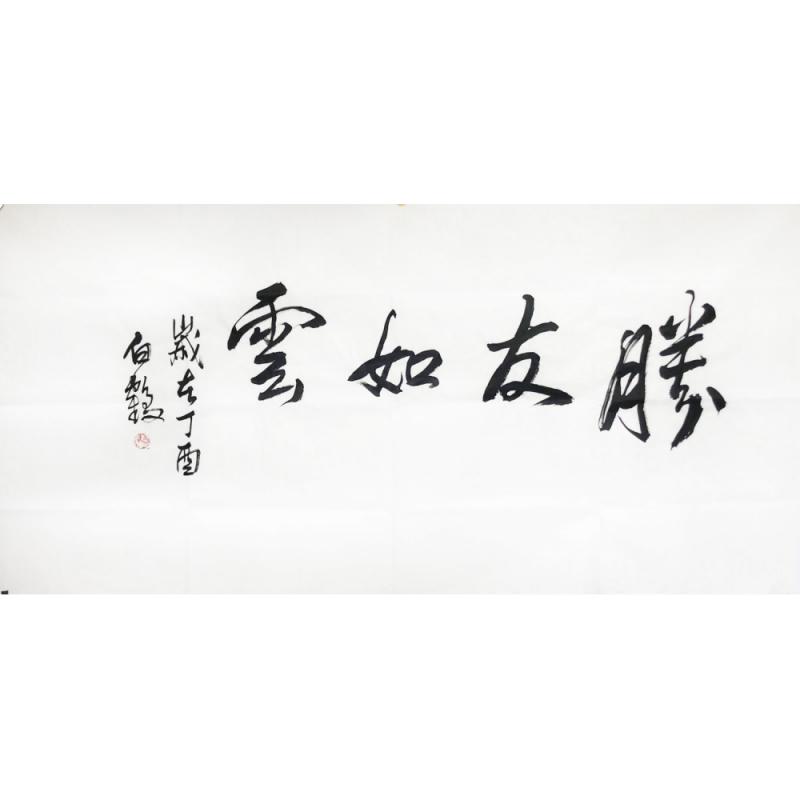 勝友如雲
歲在丁酉
伯